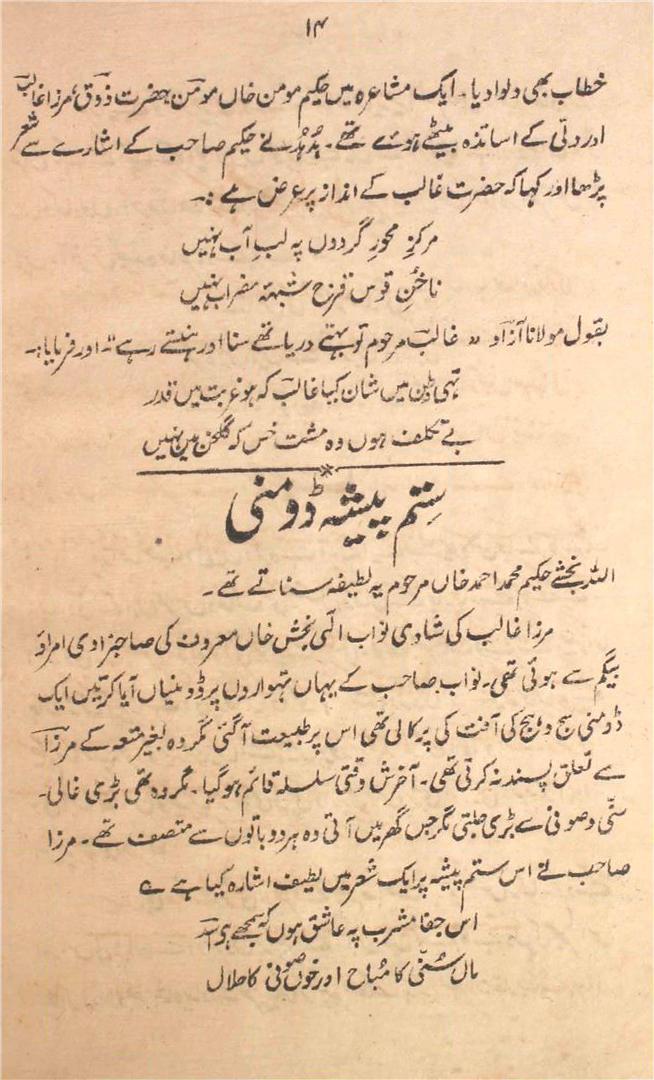 ۱۴
خطاب بھی دلوا دیا۔ ایک مشاعرہ میں حکیم مومن خاں مومنؔ، حضرت ذوقؔ، مرزا غالبؔ
اور دلّی کے اساتذہ بیٹھے ہوئے تھے۔ ہُدہُد نے حکیم صاحب کے اشارے سے شعر
پڑھا اور کہا کہ حضرت غالب کے انداز پر عرض ہے :۔
مرکزِ محورِ گردوں پہ لبِ آب نہیں
ناخنِ قوس قزح شبہۂ مضراب نہیں
بقول مولانا آزادؔ " غالبؔ مرحوم تو بہتے دریا تھے سنا اور ہنستے رہے"۔ اور فرمایا:۔
تھی وطن میں شان کیا غالبؔ کہ ہو غربت میں قدر
بے تکلف ہوں وہ مشت خس کہ گلخن میں نہیں
ستم پیشہ ڈومنی
اللہ بخشے حکیم محمد احمد خاں مرحوم یہ لطیفہ سناتے تھے۔
مرزا غالب کی شادی نواب الٰہی بخش خاں معروف کی صاحبزادی امراؤ
بیگم سے ہوئی تھی۔ نواب صاحب کے یہاں تہواروں پر ڈومنیاں آیا کرتیں ایک
ڈومنی سج دھج کی آفت کی پرکالی تھی اس پر طبیعت آگئی مگر وہ بغیر متعہ کے مرزا
سے تعلق پسند نہ کرتی تھی۔ آخرش وقتی سلسلہ قائم ہوگیا۔ مگر وہ تھی بڑی غالی۔
سنّی وصوفی سے بڑی جلتی مگر جس گھر میں آتی وہ ہر دو باتوں سے متصف تھے۔ مرزا
صاحب نے اس ستم پیشہ پر ایک شعر میں لطیف اشارہ کیا ہے ؎
اس جفا مشرب پہ عاشق ہوں کہ سمجھے ہے اسدؔ
مال سُنّی کا مُباح اور خون صوفی کا حلال